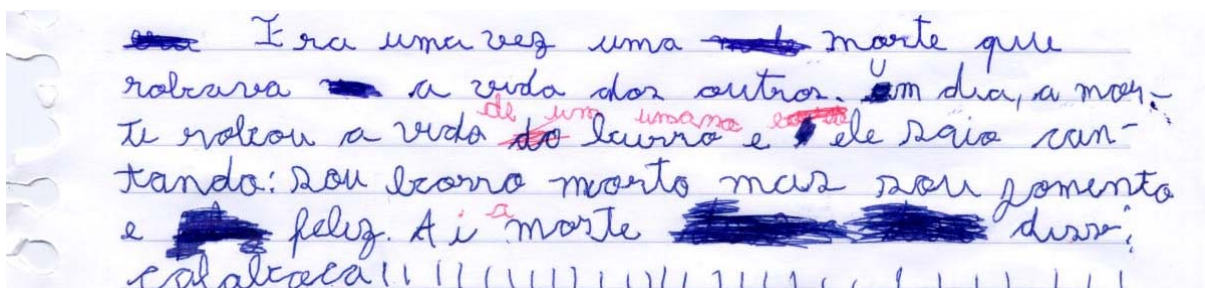 Era uma vez uma morte que
robava a vida dos outros. Um dia, a mor-
te robou a vida de um umano burro e ele saio can-
tando: sou borro morto mas sou jomento
e feliz. Ai a morte disse:
calaboca!!!!!!!!!!!!!!!!!!!!!!